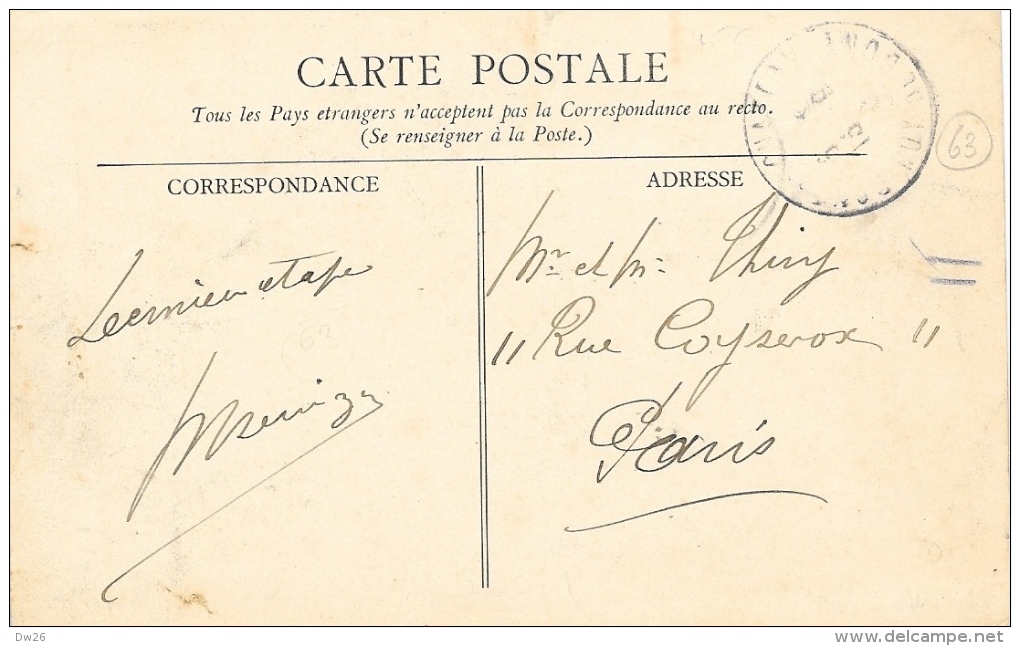 CARTE POSTALE
Tous les Pays etrangers n'acceptent pas la Correspondance au recto.
(Se renseigner à la Poste.)
CORRESPONDANCE
ADRESSE
63
etape
63
Mr et Mme Thiry
11 Rue Coysevox "
Paris
Dw26
www.delcampe.net